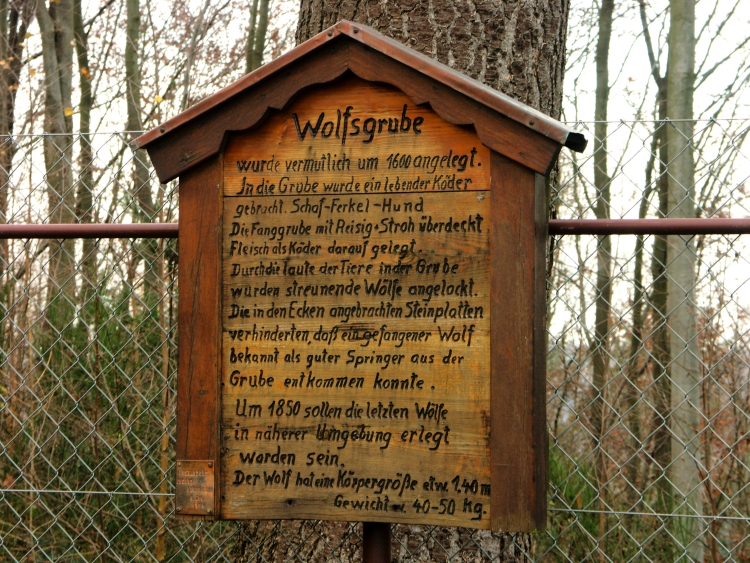 Wolfsgrube
wurde vermutlich um 1600 angelegt.
In die Grube wurde ein lebender Köder
gebracht. Schaf-Ferkel-Hund
Die Fanggrube mit Reisig + Stroh überdeckt
Fleisch als Köder darauf gelegt.
Durch die Laute der Tiere in der Grube
wurden streunende Wölfe angelockt.
Die in den Ecken angebrachten Steinplatten
verhinderten, daß ein gefangener Wolf
bekannt als guter Springer aus der
Grube entkommen konnte.
Um 1850 sollen die letzten Wölfe
in näherer Umgebung erlegt
worden sein.
Der Wolf hat eine Körpergröße etw. 1.40 m
Gewicht 40-50 kg.